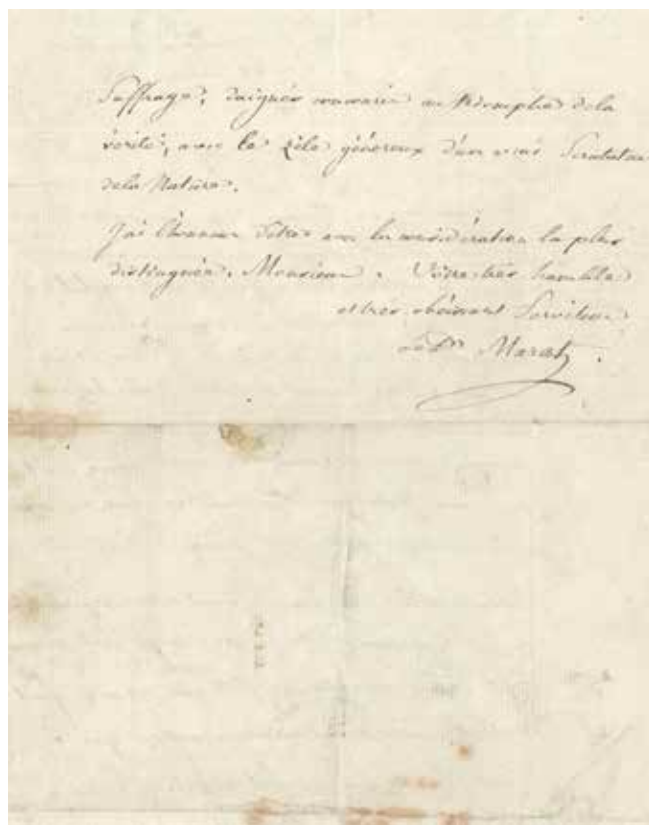 Suffrage, daignés concourir au triomphe de la
vérité, avec le zèle généreux d'un vrai Scrutateur
de la Nature.
J'ai l'honneur d'être avec la considération la plus
distinguée, Monsieur, Votre très humble
et très obéissant Serviteur
Le Dr Marat.